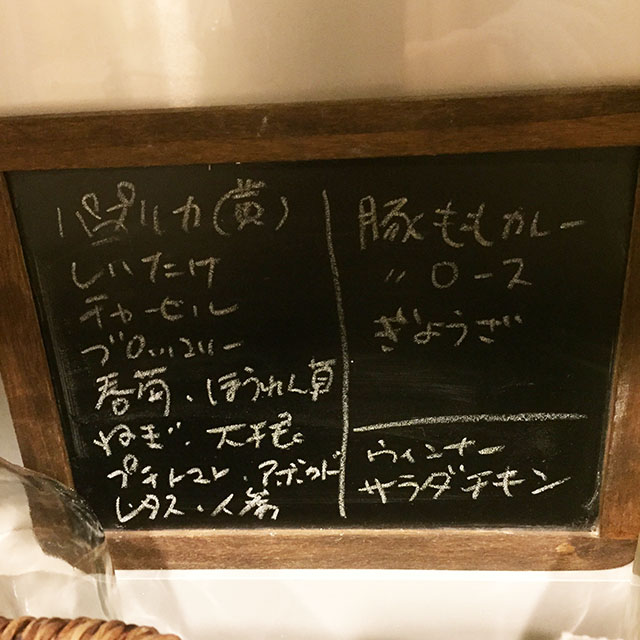 パプリカ(黄)
しいたけ
チャービル
ブロッコリー
春菊・ほうれん草
ねぎ・大根
プチトマト・アボカド
レタス・人参
豚ももカレー
〃ロース
ぎょうざ
ウィンナー
サラダチキン